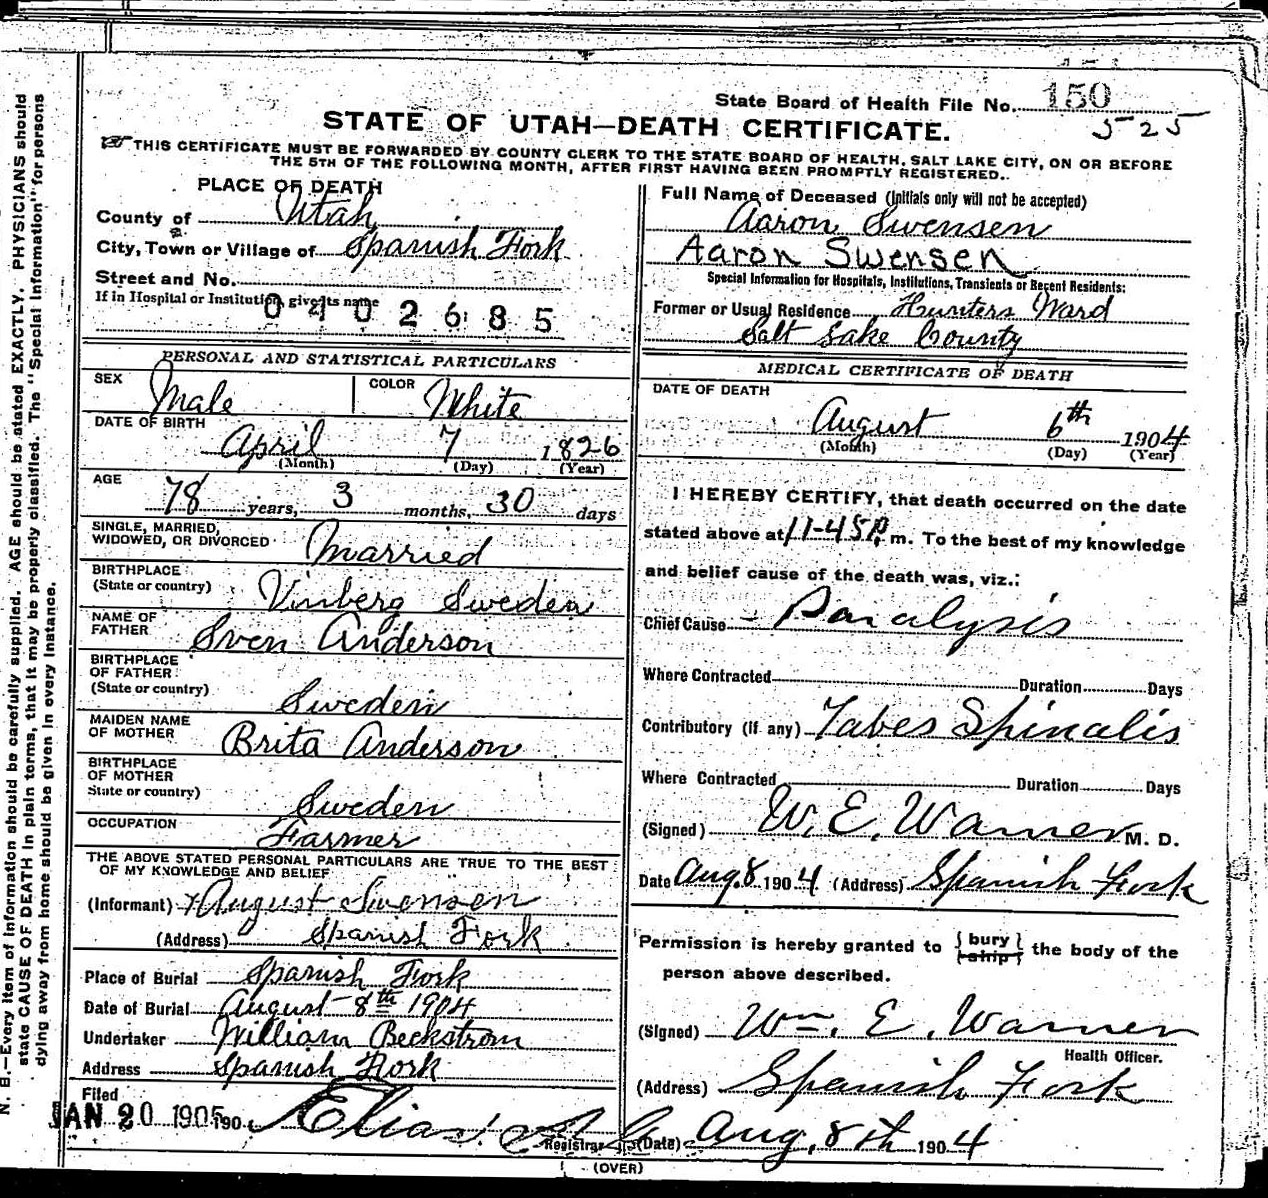 State Board of Health File No. 150
525
STATE OF UTAH—DEATH CERTIFICATE.
THIS CERTIFICATE MUST BE FORWARDED BY COUNTY CLERK TO THE STATE BOARD OF HEALTH, SALT LAKE CITY, ON OR BEFORE
THE 5TH OF THE FOLLOWING MONTH, AFTER FIRST HAVING BEEN PROMPTLY REGISTERED.
PLACE OF DEATH
County of Utah
City, Town or Village of Spanish Fork
Street and No.
If in Hospital or Institution, give its name
0402685
PERSONAL AND STATISTICAL PARTICULARS
SEX Male COLOR White
DATE OF BIRTH
April 7 1826
(Month) (Day) (Year)
AGE
78 years, 3 months, 30 days
SINGLE, MARRIED,
WIDOWED, OR DIVORCED Married
BIRTHPLACE
(State or country) Vinberg Sweden
NAME OF
FATHER Sven Anderson
BIRTHPLACE
OF FATHER
(State or country) Sweden
MAIDEN NAME
OF MOTHER Brita Anderson
BIRTHPLACE
OF MOTHER
State or country) Sweden
OCCUPATION Farmer
THE ABOVE STATED PERSONAL PARTICULARS ARE TRUE TO THE BEST
OF MY KNOWLEDGE AND BELIEF
(Informant) August Swensen
(Address) Spanish Fork
Place of Burial Spanish Fork
Date of Burial August 8th 1904
Undertaker William Beckstrom
Address Spanish Fork
Filed
JAN 20 1905 190
Elias
Registrar
Full Name of Deceased (Initials only will not be accepted)
Aaron Swensen
Aaron Swensen
Special Information for Hospitals, Institutions, Transients or Recent Residents:
Former or Usual Residence Hunters Ward
Salt Lake County
MEDICAL CERTIFICATE OF DEATH
DATE OF DEATH
August 6th 1904
(Month) (Day) (Year)
I HEREBY CERTIFY, that death occurred on the date
stated above at 11-45 P. m. To the best of my knowledge
and belief cause of the death was, viz.:
Chief Cause - Paralysis
Where Contracted Duration Days
Contributory (if any) Tabes Spinalis
Where Contracted Duration Days
(Signed) W. E. Warner M. D.
Date Aug. 8 1904 (Address) Spanish Fork
Permission is hereby granted to { bury } the body of the
{ ship }
person above described.
(Signed) Wm. E. Warner
Health Officer.
(Address) Spanish Fork
(Date) Aug. 8th 1904
(OVER)
N. B.—Every item of information should be carefully supplied. AGE should be stated EXACTLY. PHYSICIANS should
state CAUSE OF DEATH in plain terms, that it may be properly classified. The "Special Information" for persons
dying away from home should be given in every instance.